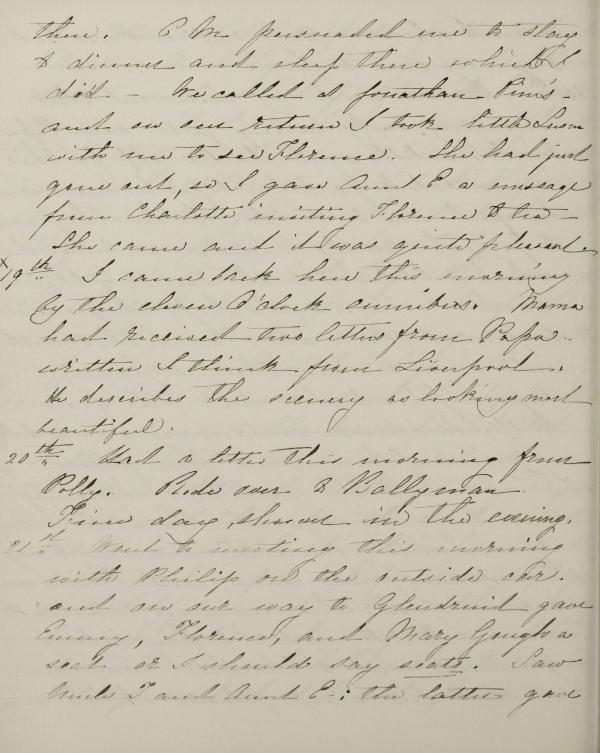 there. C M persuaded me to stay
to dinner and sleep there which I
did – We called at Jonathan Pim's –
and on our return I took little Susan
with me to see Florence. She had just
gone out, so I gave Aunt E a message
from Charlotte inviting Florence to tea –
She came and it was quite pleasant.
x 19th I came back here this morning
by the eleven O'clock omnibus. Mama
had received two letters from Papa –
written I think from Liverpool.
He describes the scenery as looking most
beautiful.
20th Had a letter this morning from
Polly. Rode over to Ballyman.
Fine day, shower in the evening.
21st Went to meeting this morning
with Philip on the outside car.
and on our way to Glendruid gave
Emmy, Florence, and Mary Gough a
seat or I should say seats. Saw
Uncle T and Aunt E–; the latter gave